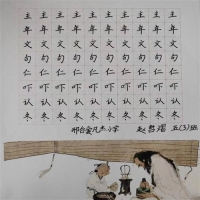 主 主 主 主 主 主 主 主 主
年 年 年 年 年 年 年 年 年
文 文 文 文 文 文 文 文 文
句 句 句 句 句 句 句 句 句
仁 仁 仁 仁 仁 仁 仁 仁 仁
吓 吓 吓 吓 吓 吓 吓 吓 吓
认 认 认 认 认 认 认 认 认
冬 冬 冬 冬 冬 冬 冬 冬 冬
邢台爱凡杰小学 五(3)班